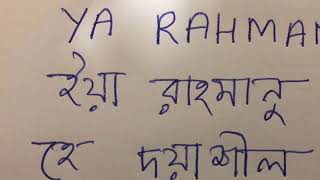 YA RAHMAN
ইয়া রাহমানু
হে দয়াশীল